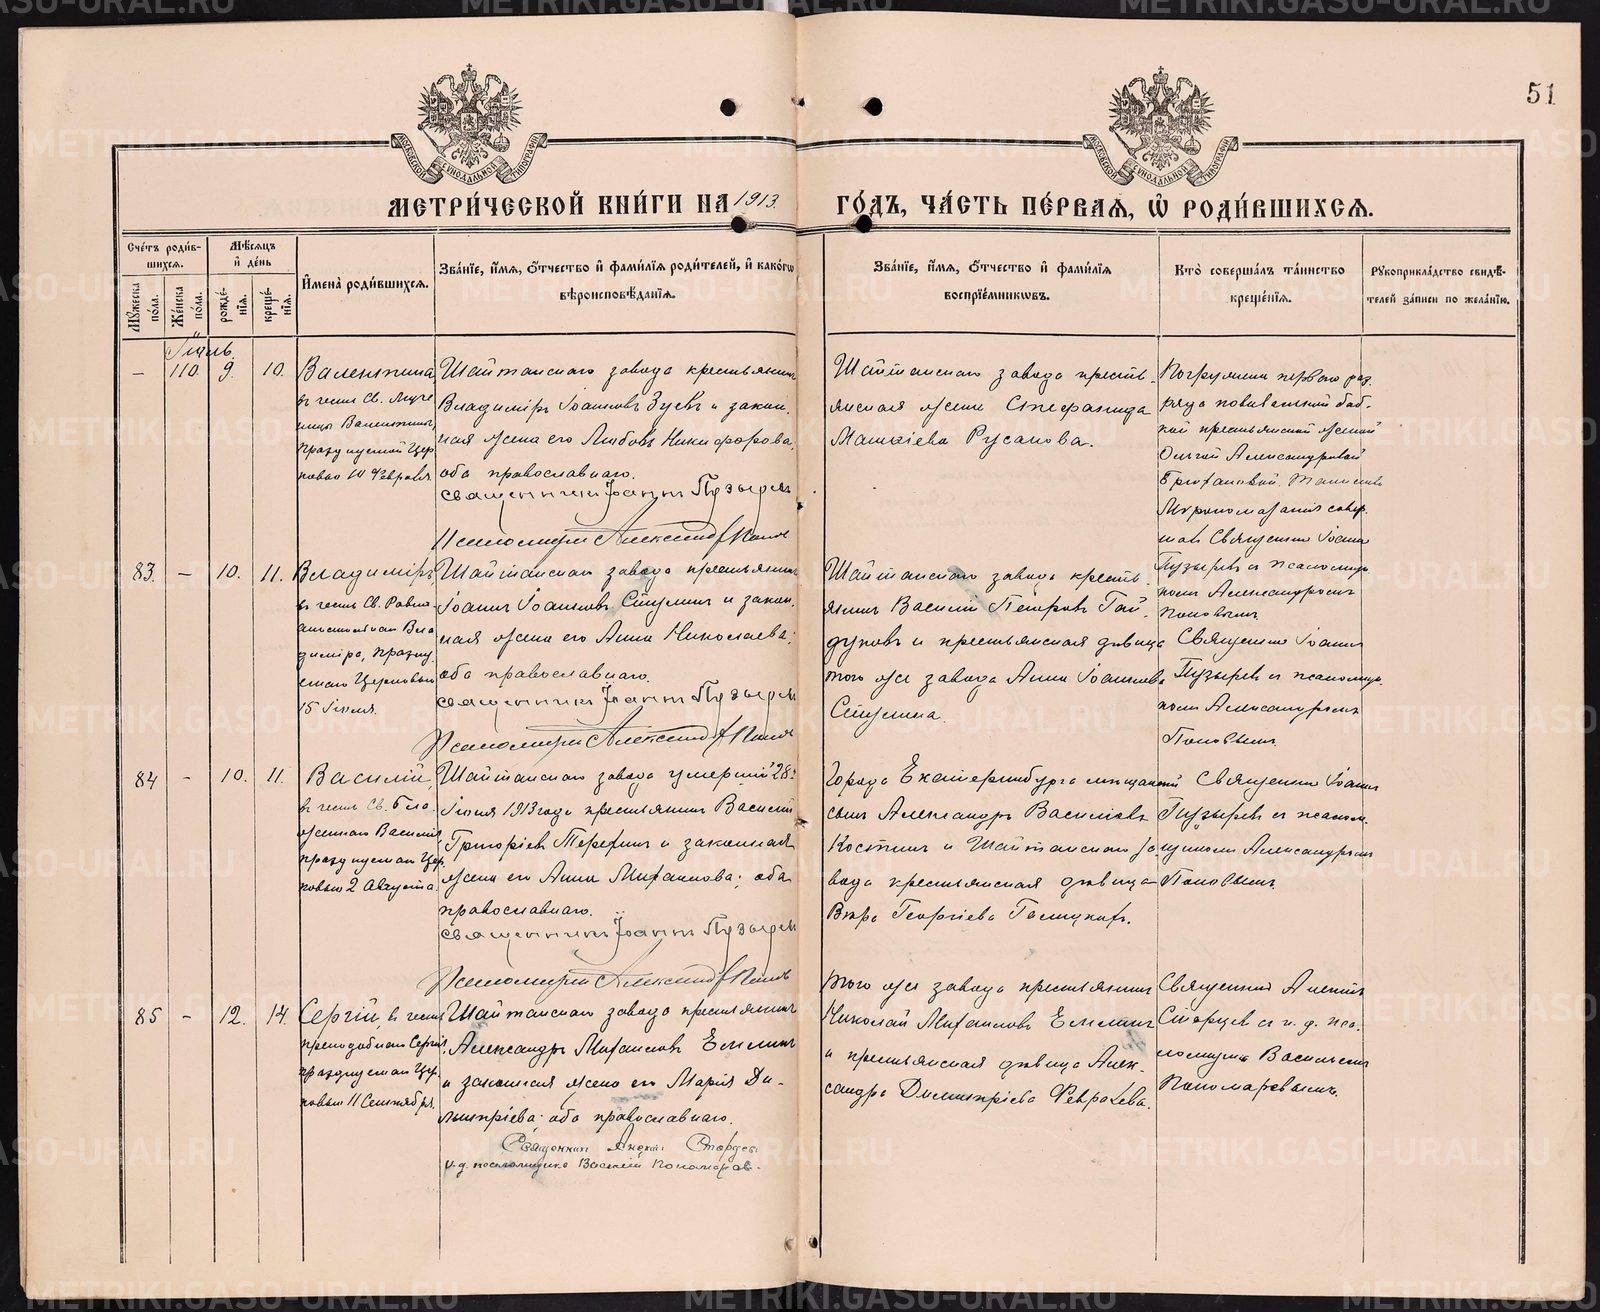 51
МОСКОВСКОЙ СѴНОДАЛЬНОЙ ТИПОГРАФІИ
МОСКОВСКОЙ СѴНОДАЛЬНОЙ ТИПОГРАФІИ
МЕТРИ́ЧЕСКОЙ КНИ́ГИ НА 1913.
ГО́ДЪ, ЧА́СТЬ ПЕ́РВАѦ, Ѡ҆ РОДИ́ВШИХСѦ.
Сче́тъ роди́в-
шихсѧ.
Мѣ́сѧцъ
и҆ де́нь
Мꙋ́жеска
по́ла.
Же́нска
по́ла.
рожде́-
нїѧ.
креще́-
нїѧ.
И҆мена̀ роди́вшихсѧ.
Зва́нїе, и҆́мѧ, ѻ҆́тчество и҆ фами́лїѧ роди́телей, и҆ како́гѡ
вѣроисповѣ́данїѧ.
Зва́нїе, и҆́мѧ, ѻ҆́тчество и҆ фами́лїѧ
воспрїе́мникѡвъ.
Кто̀ соверша́лъ та́инство
креще́нїѧ.
Рꙋкоприкла́дство свидѣ́-
телей за́писи по жела́нїю.
Іюль.
— 110. 9. 10.
Валентина
въ честь Св. Муче
ницы Валентины,
празднуемой Цер
ковью 10 Февраля
Шайтанскаго завода крестьянинъ
Владиміръ Іоанновъ Зуевъ и закон.
ная жена его Любовь Никифорова,
оба православнаго.
Священникъ Іоаннъ Пузыревъ
Псаломщикъ Александръ Поповъ
Шайтанскаго завода кресть-
янская жена Стефанида
Матѳіева Русанова.
Погружена перваго раз.
ряда повивальной баб-
кой крестьянской женой
Ольгой Александровой
Таинство
Мѵропомазанія совер.
шалъ Священникъ Іоаннъ
Пузыревъ съ псаломщи
комъ Александромъ
Поповымъ.
83. — 10. 11.
Владиміръ
въ честь Св. Равно
апостольнаго Вла
диміра, праздну
емаго Церковью
15 Іюля.
Шайтанскаго завода крестьянинъ
Іоаннъ Іоанновъ Стулинъ и закон.
ная жена его Анна Николаева;
оба православнаго.
Священникъ Іоаннъ Пузыревъ
Псаломщикъ Александръ Поповъ
Шайтанскаго завода кресть-
янинъ Василій Петровъ Гай
дуковъ и крестьянская дѣвица
того же завода Анна Іоаннова
Стулина.
Священникъ Іоаннъ
Пузыревъ съ псаломщи-
комъ Александромъ
Поповымъ.
84 - 10. 11.
Василій,
въ честь Св. Бла.
женнаго Василія,
празднуемаго Цер.
ковью 2 Августа.
Шайтанскаго завода умершій 28
Іюня 1913 года крестьянинъ Василій
Григоріевъ Терехинъ и законная
жена его Анна Михаилова; оба
православнаго.
Священникъ Іоаннъ Пузыревъ
Псаломщикъ Александръ Поповъ
Города Екатеринбурга мѣщанскій
сынъ Александръ Васильевъ
Костинъ и Шайтанскаго за.
вода крестьянская дѣвица
Вѣра Георгіева
Священникъ Іоаннъ
Пузыревъ съ псалом.
щикомъ Александромъ
Поповымъ.
85 - 12. 14.
Сергій, въ честь
преподобнаго Сергія,
празднуемаго Цер.
ковью 11 Сентября.
Шайтанскаго завода крестьянинъ
Александръ Михаиловъ Емлинъ
и законная жена его Марія Ди-
митріева; оба православнаго.
Священникъ Старцевъ
и. д. псаломщика Василій Пономаревъ.
того же завода крестьянинъ
Николай Михаиловъ Емлинъ
и крестьянская дѣвица Алек-
сандра Димитріева Февралева.
Священникъ
Старцевъ съ и. д. пса.
ломщика Василіемъ
Пономаревымъ.
METRIKI.GASO-URAL.RU